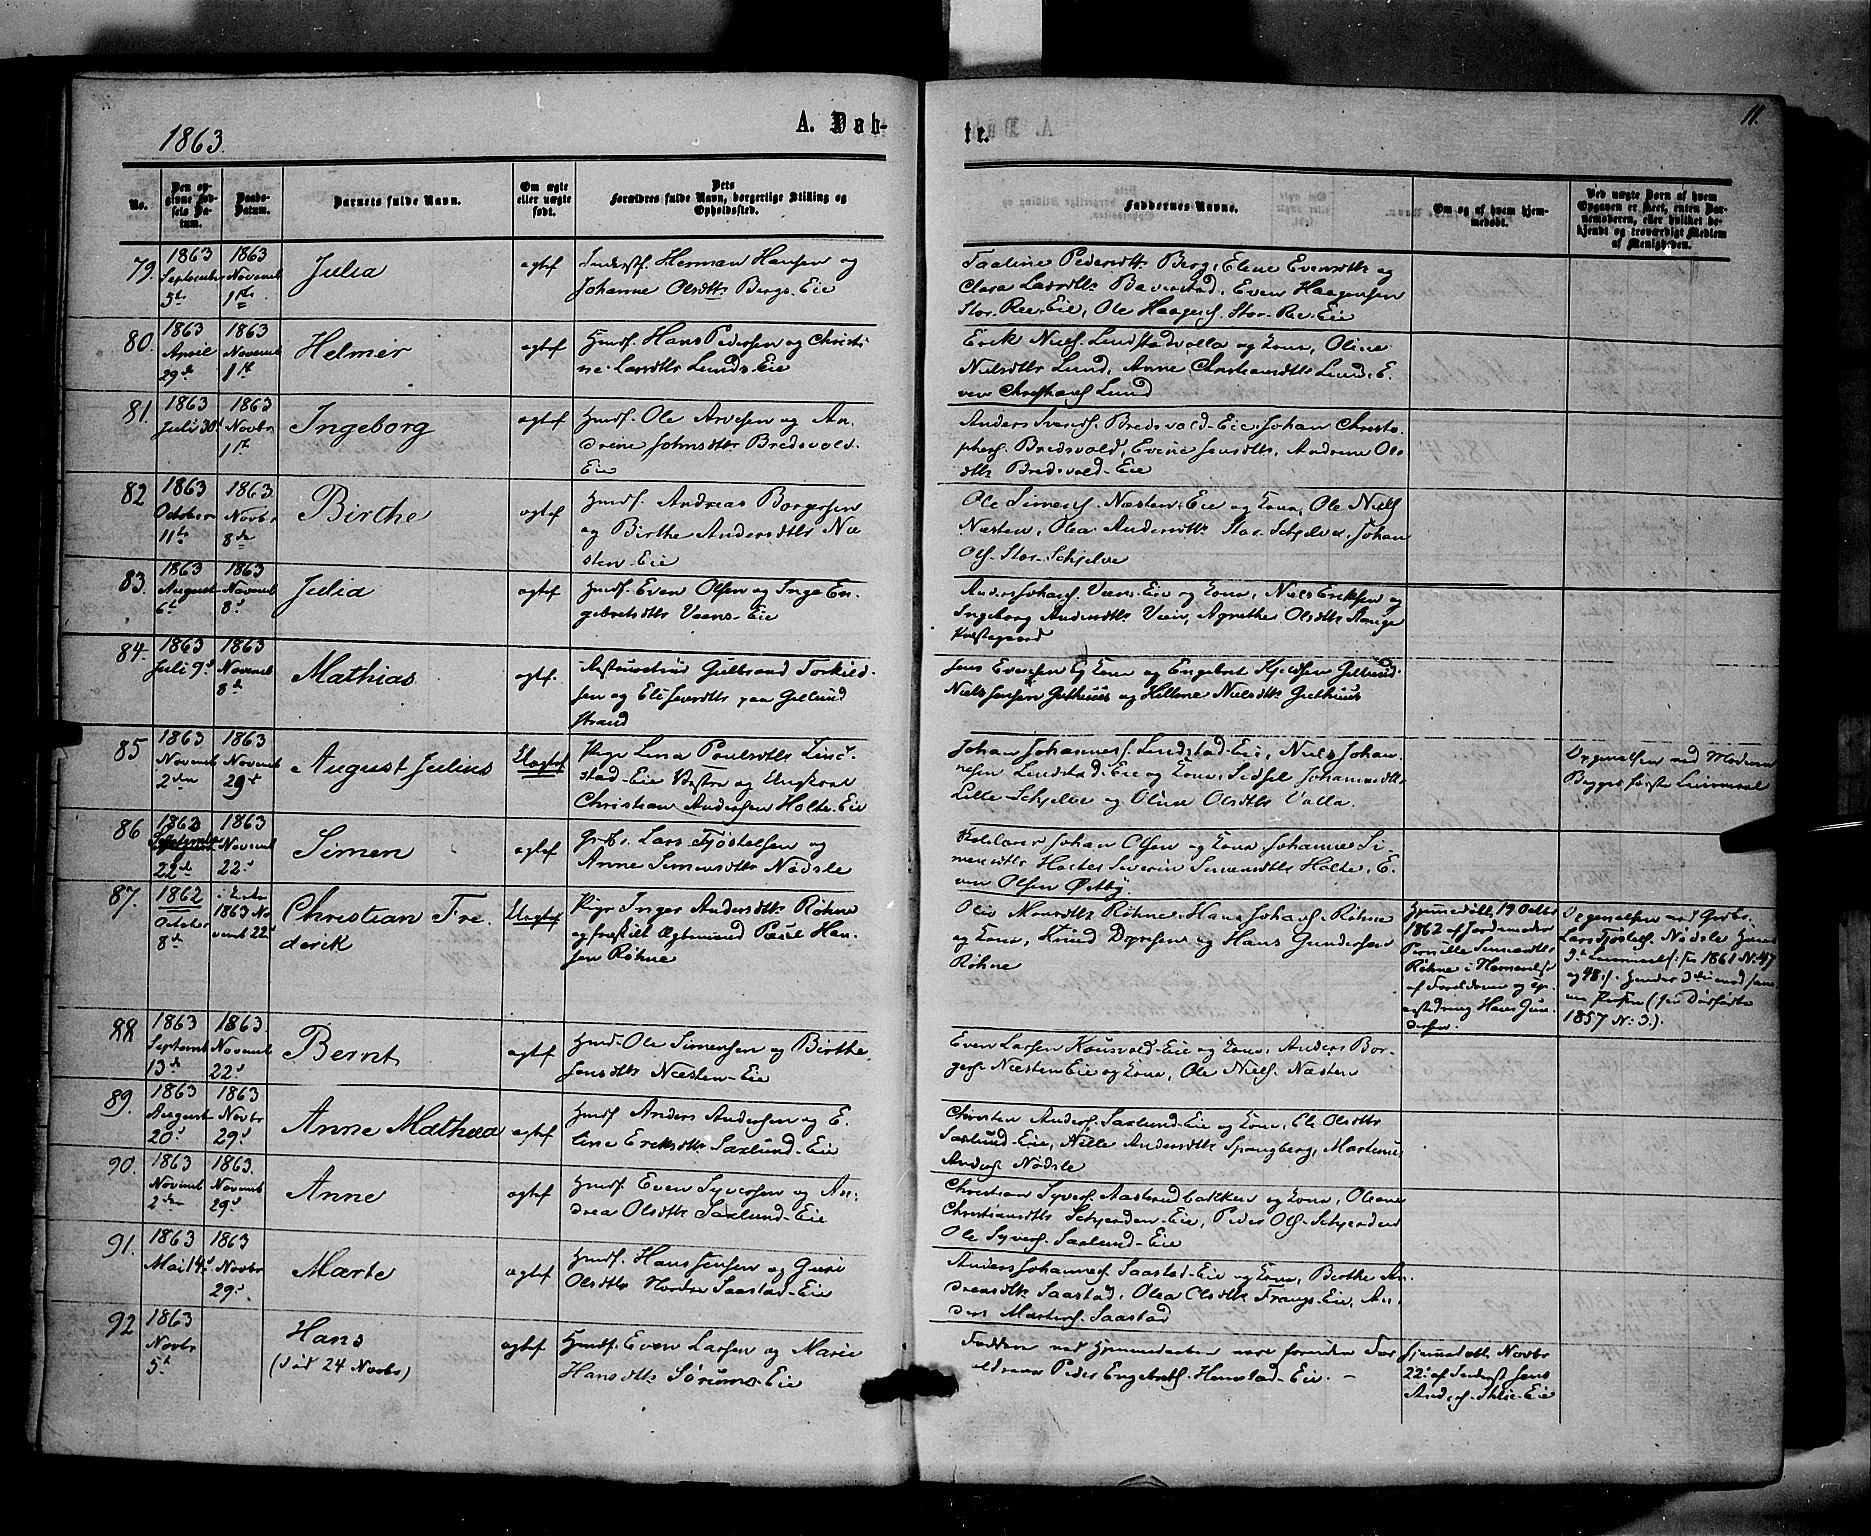 1863.
A. Døb-
te.
11.
No.
Den opgivne Fødsels Datum.
Daabs-Datum.
Barnets fulde Navn.
Om ægte eller uægte født.
Dets Forældres fulde Navn, borgerlige Stilling og Opholdssted.
Faddernes Navne.
Om og af hvem hjemmedøbt.
Ved uægte Børn af hvem Opgaven er skeet, enten Barnemoderen, eller hvilket bekjendt og troværdigt Medlem af Menigheden.
79.
1863 Septembr 5te
1863 Novemb 1ste
Julia
ægtef
Inderstf. Herman Hansen og
Johanne Olsdttr Bergs-Eie
Taaline Pedersdttr Berg, Elene Evensdttr og
Clara Larsdttr Baverstad, Even Haagensen
Stor-Ree-Eie, Ole Haagens. Stor-Ree-Eie
80.
1863 April 29de
1863 Novemb 1ste
Helmer
ægtef
Hmdf. Hans Pedersen og Christi
ne Larsdttr Lunds-Eie
Erik Niels. Lundstadvolla og Kone, Oline
Nielsdttr Lund, Anne Christiansdttr Lund, E-
ven Christians. Lund
81.
1863 Juli 30te
1863 Novbr 1ste
Ingeborg
ægtef
Hmdf. Ole Arnesen og An-
drine Johnsdttr Bredsvold-
Eie
Anders Svends. Bredsvold-Eie, Johan Christo-
phers. Bredsvold, Eveine Jensdttr, Andrine Ols
dttr Bredsvold-Eie
82
1863 October 11te
1863 Novbr 8de
Birthe
ægtef
Hmdf. Andreas Borgersen
og Birthe Andersdttr Næ
sten-Eie
Ole Simens. Næsten-Eie og Kone, Ole Niels
Næsten, Olea Andersdttr Stor-Schjelve, Johan
Ols. Stor-Schjelve
83.
1863 August 6te
1863 Novemb 8de
Julia
ægtef
Hmdf. Even Olsen og Inge En-
gebretsdttr Veens-Eie
Anders Johans. Veens-Eie og Kone, Niels Eriksen og
Ingeborg Andersdttr Veen, Agnethe Olsdttr Stange
Præstegaard
84.
1863 Juli 9de
1863 Novemb 8de
Mathias
ægtef.
Gulbrand Torkild-
sen og Eli Jensdttr paa Gillund
strand
Jens Evensen og Kone og Engebret Kjeldsen Gillund
Niels Jensen Guthuus og Helene Nielsdttr Guthuus
85
1863 Novemb 2den
1863 Novemb 29de
August Julius
Uægtef
Pige Lena Poulsdttr Lind-
stad-Eie Vestre og Ungkarl
Christian Andersen Holte-Eie
Johan Johannes. Lindstad-Eie, Niels Johan-
nesen Lindstad-Eie og Kone, Sidsel Johannesdttr
Lille-Schjelve og Oline Olsdttr Valla.
Opgivelsen ved Moderen
Begges første Leiermaal
86
1863 Septembr 22de
1863 Novemb 22de
Simen
ægtef
Grbr. Lars Fjøstelsen og
Anne Simensdttr Nødsle
Johan Olsen og Kone Johanne Si-
mensdttr Holte, Severin Simensdttr Holte, E-
ven Olsen Østby
87.
1862 October 8de
i Kirke 1863 Novemb 22de
Christian Fre
derik
Uægtef
Pige Inger Andersdttr Røhne
og fraskilt Ægtemand Paul Han-
sen Røhne
Olie Røhne, Hans Johans. Røhne
og Kone, Knud Dyresen og Hans Gundersen
Røhne
Hjemmedøbt 19 Octbr
1862 af Jordemoder
Pernille Simensdttr
Røhne i Nærværelse
af Forældrene og
Hans Gun-
dersen.
Opgivelsen ved Grdbr.
Lars Fjøstels. Nødsle Hans
3de Leiermaal (se 1861 N: 47
og 48). Hendes 3die med sam-
me Person (jvn Døbte
1857 N: 3).
88
1863 Septemb 13de
1863. Novemb 22de
Bernt
ægtef
Hmd. Ole Simensen og Birthe
Jensdttr Næsten-Eie
Even Larsen Kausvold-Eie og Kone, Anders Bor-
gers. Næsten-Eie og Kone, Ole Niels. Næsten
89.
1863 August 20de
1863 Novbr 29de
Anne Mathea
ægtef
Hmdf. Anders Andersen og E-
line Eriksdttr Saxlund-Eie
Christen Anders. Saxlund-Eie og Kone, Eli Olsdttr
Saxlund-Eie, Nille Andersdttr Spangberg, Martinus
Anders. Nødsle
90.
1863 Novemb 2den
1863. Novemb 29de
Anne
ægtef
Hmdf. Even Syversen og An-
drea Olsdttr Saxlund-Eie
Christian Syvers. Aasterudbakken og Kone, Oleane
Christiansdttr Schjerden-Eie, Peder Ols. Schjerden
Ole Syvers. Saxlund-Eie
91.
1863 Mai 14de
1863 Novbr 29de.
Marte
ægtef
Hmdf. Hans Jensen og Guri
Olsdttr Nordre Saastad-Eie
Anders Johannes. Saastad-Eie og Kone, Birthe An-
dersdttr Saastad, Olea Olsdttr Frangs-Eie, An-
ders Martins. Saastad
92
1863 Novbr 5te
Hans
(død 24 Novbr)
ægtef
Hmdf. Even Larsen og Marie
Hansdttr Sørums-Eie
Faddere ved Hjemmedaaben vare foruden For
ældrene Peder Engebrets. Hemstad-Eie. —
Hjemmedøbt Novbr
22de af Inderst Jens
Anders. Eie